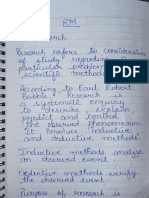 RM
Research
Research refers to consideration
of study regarding a
particular problem
scientific methods
According to Earl Robert
Babbie Research is
a systematic enquiry
describe explain
predict and control
the observed phenomenon
It involves inductive
and deductive methods
Inductive methods analyse
an observed event
Deductive methods verify
the observed event
Purpose of research is